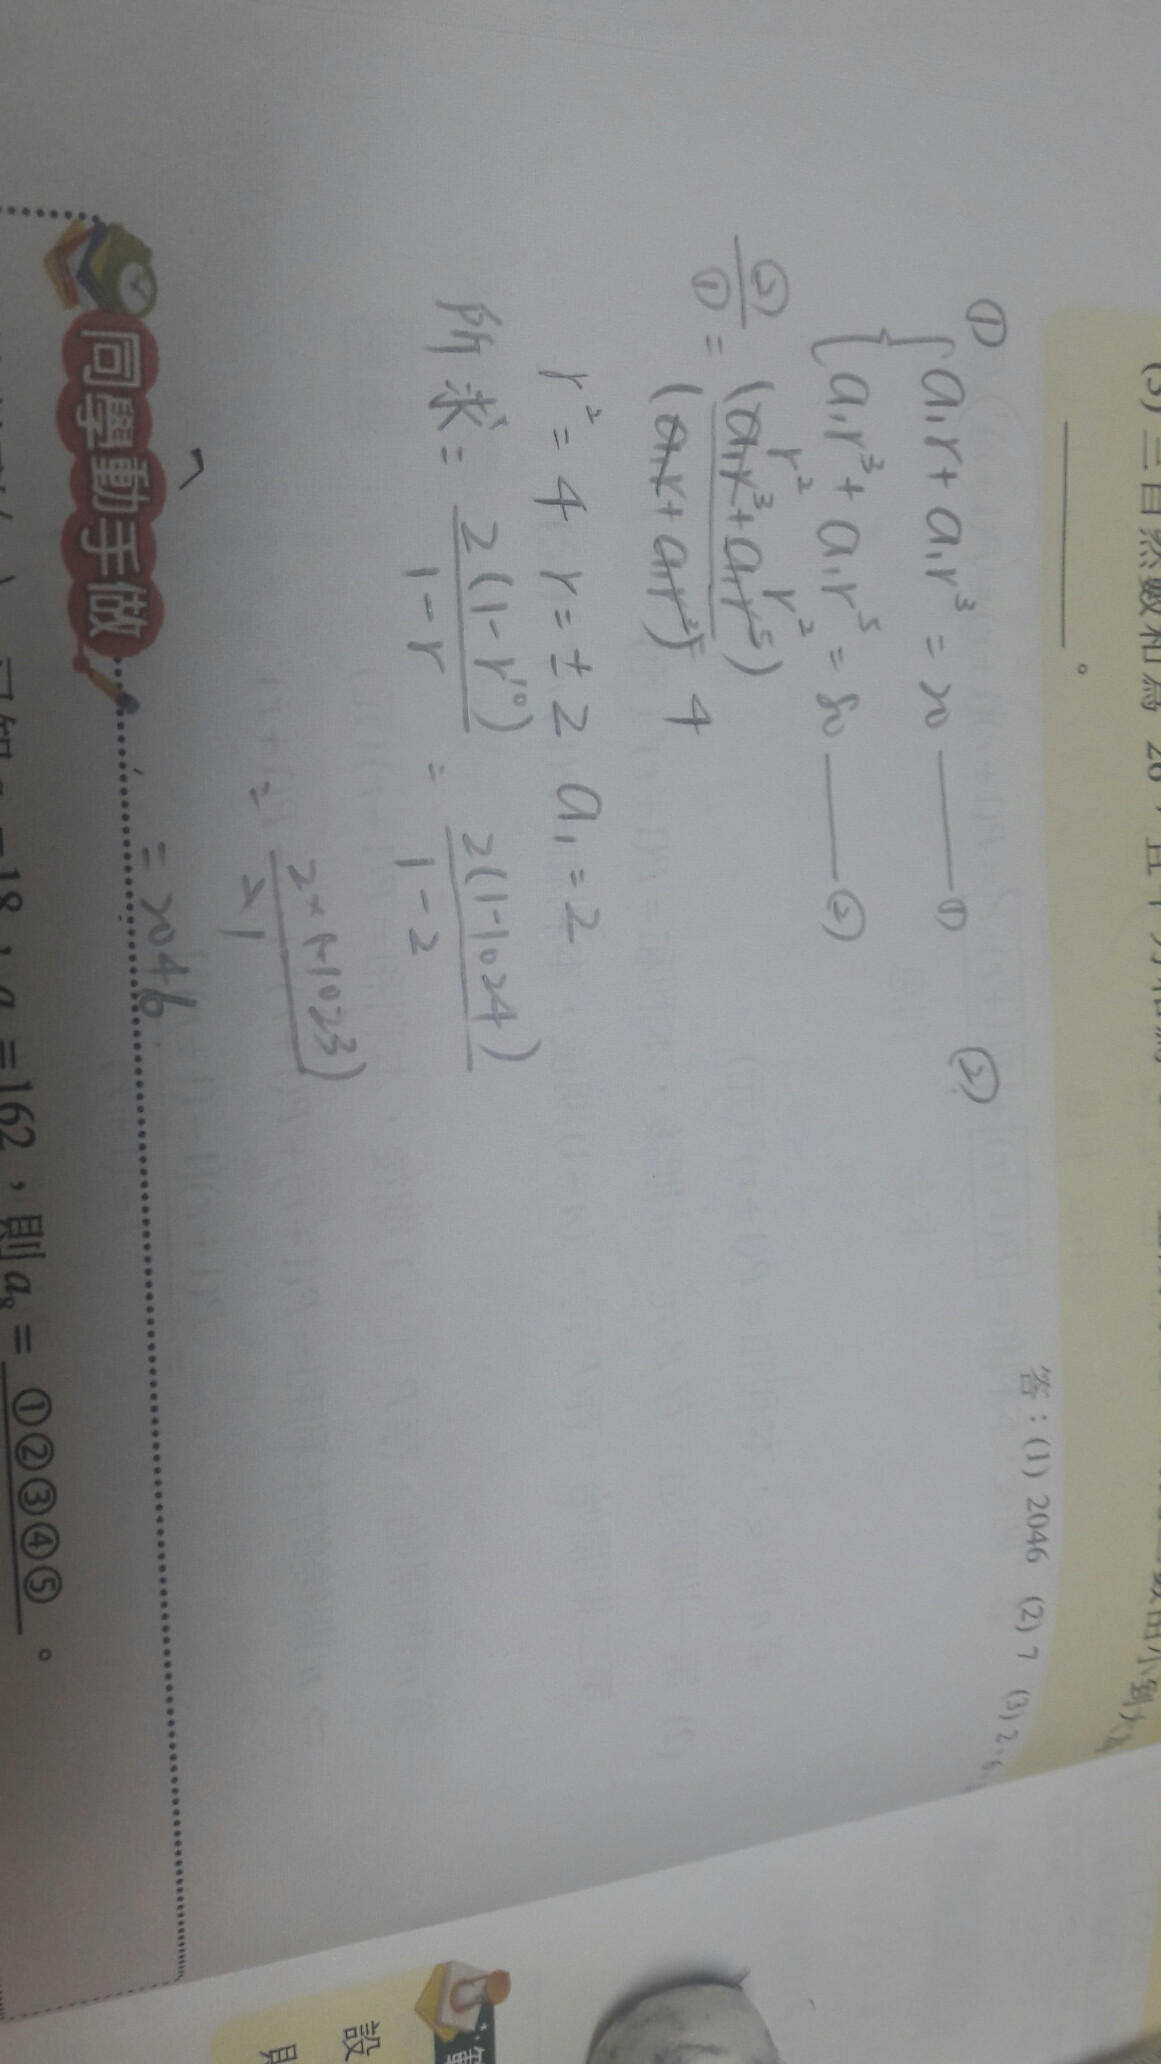 (3) 三自然數和為 26，且平方和
答：(1) 2046 (2) 7 (3) 2、6、
①
a₁r + a₁r³ = 20 ——①
a₁r³ + a₁r⁵ = 80 ——②
②
②/① = (a₁r³ + a₁r⁵) / (a₁r + a₁r³) = 4
r² r²
r² = 4 r = ±2 a₁ = 2
所求 = 2(1-r¹⁰) / 1-r = 2(1-1024) / 1-2
= 2×(-1023) / -1
= 2046
同學動手做
=162，則a₈ = ①②③④⑤ 。
設